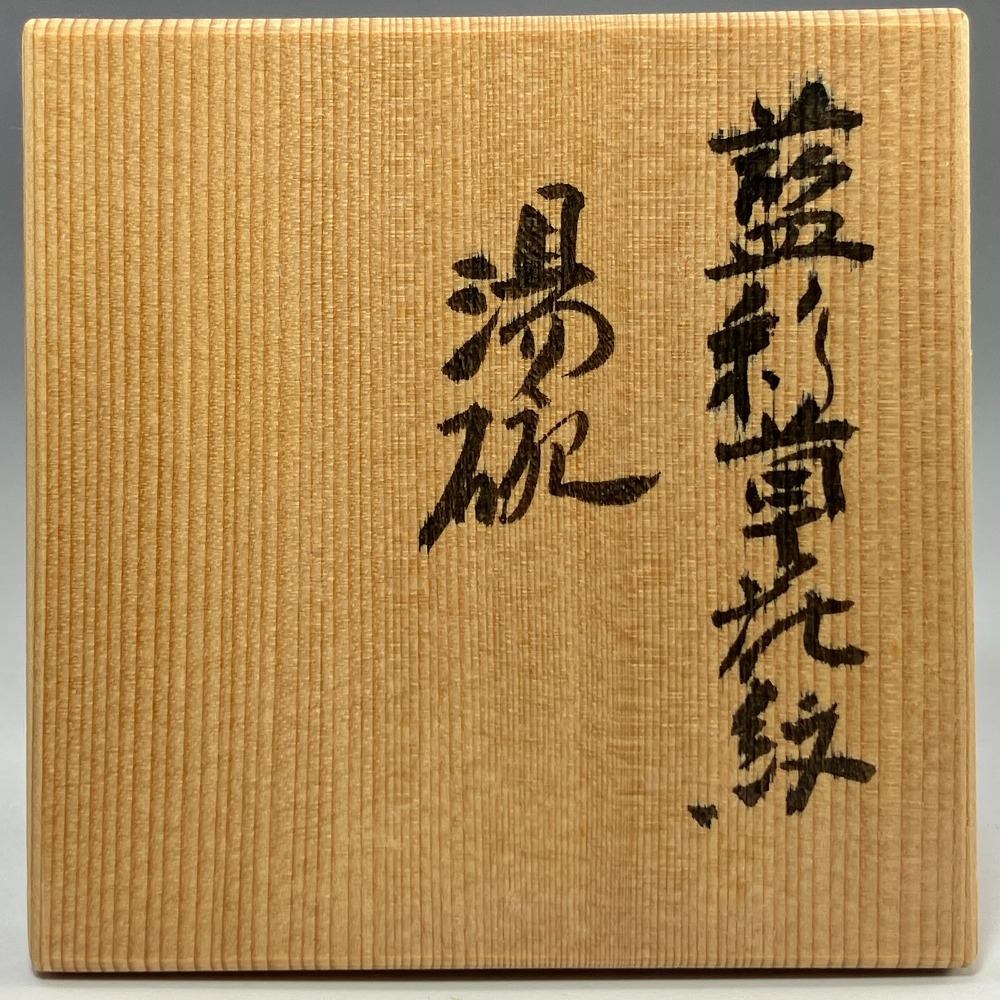 藍彩草花紋
湯碗